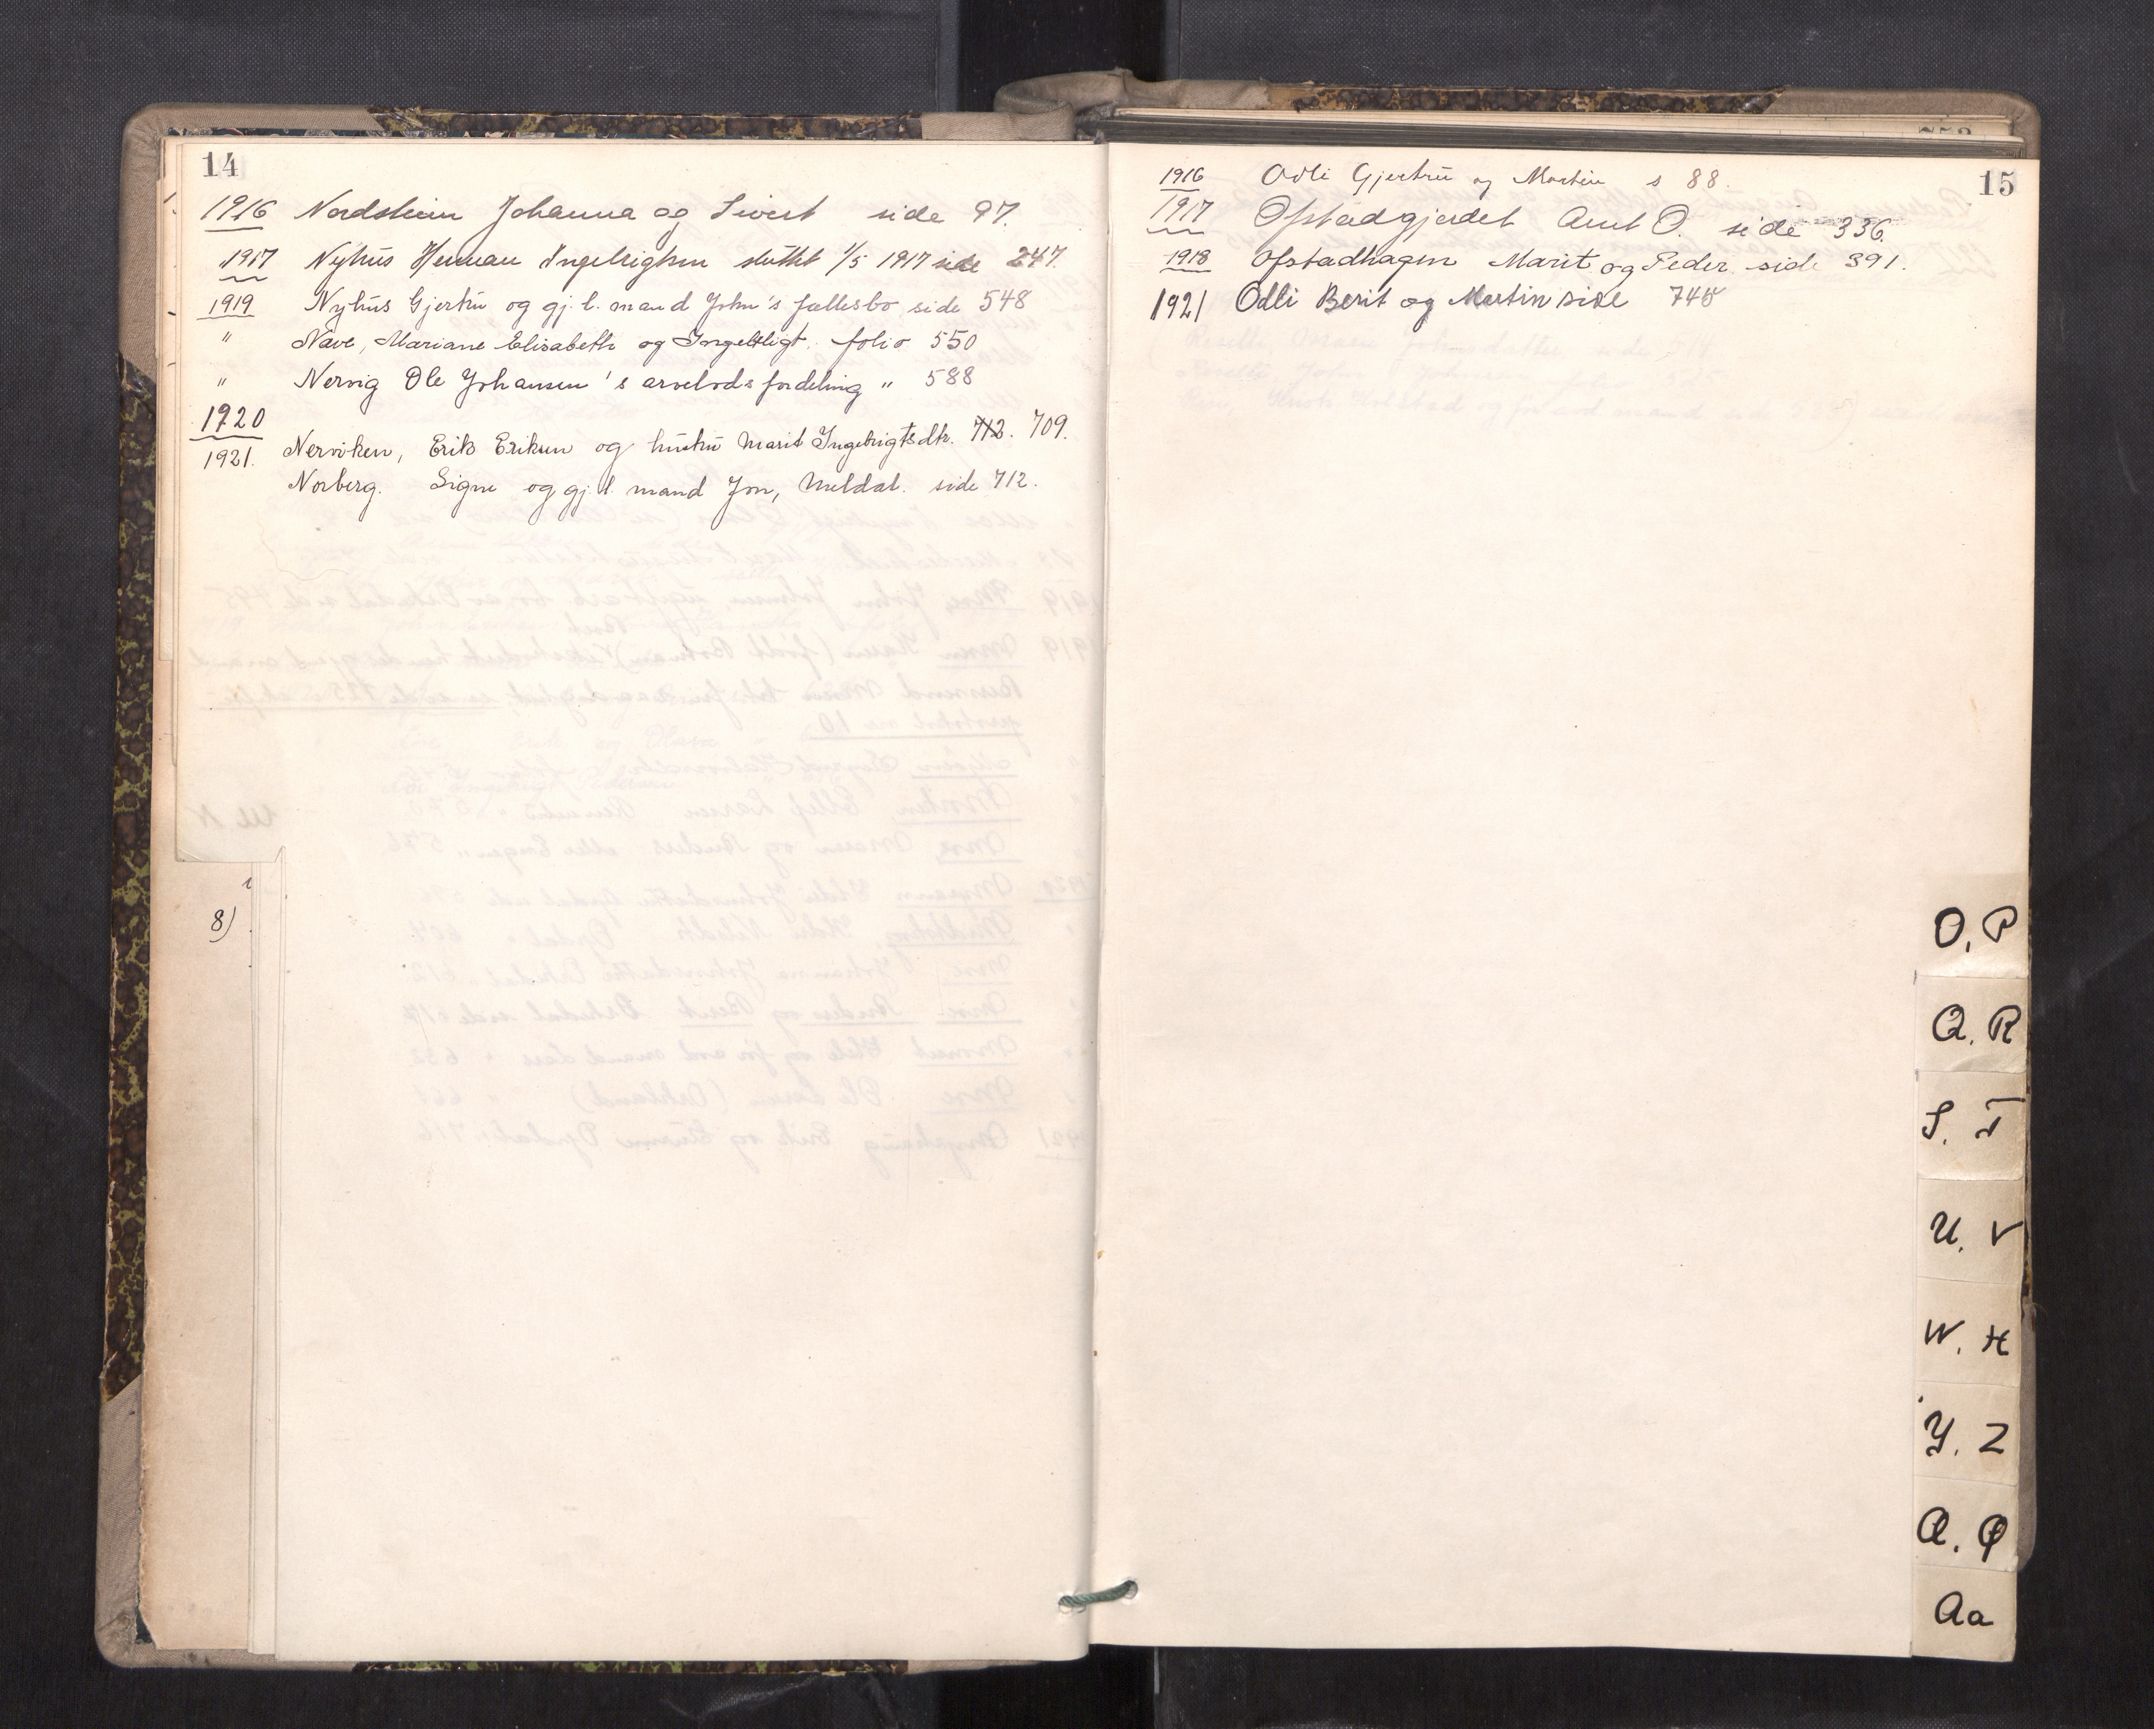 14
1916 Nordsteien Johanna og Sivert side 97.
1917 Nyhus Herman Ingebrigtsen sluttet 1/5 1917 side 247.
1919 Nyhus Gjertru og gj. l. mand John's fællesbo side 548
" Nave, Mariane Elisabeth og folio 550
" Nervig Ole Johansen's arvelodsfordeling " 588
1920
1921. Nerviken, Erik Eriksen og hustru Marit Ingebrigtsdtr. 712. 709.
Norberg. Signe og gj. l. mand Jon, Meldal. side 712.
8)
15
1916 Odli Gjertru og Martin s 88.
1917 Ofstadgjerdet Arnt O. side 336.
1918 Ofstadhagen Marit og Peder side 391.
1921 Odli Berit og Martin side 740
O, P
Q. R
S. T
U. V
W. X
Y. Z
Æ. Ø
Aa